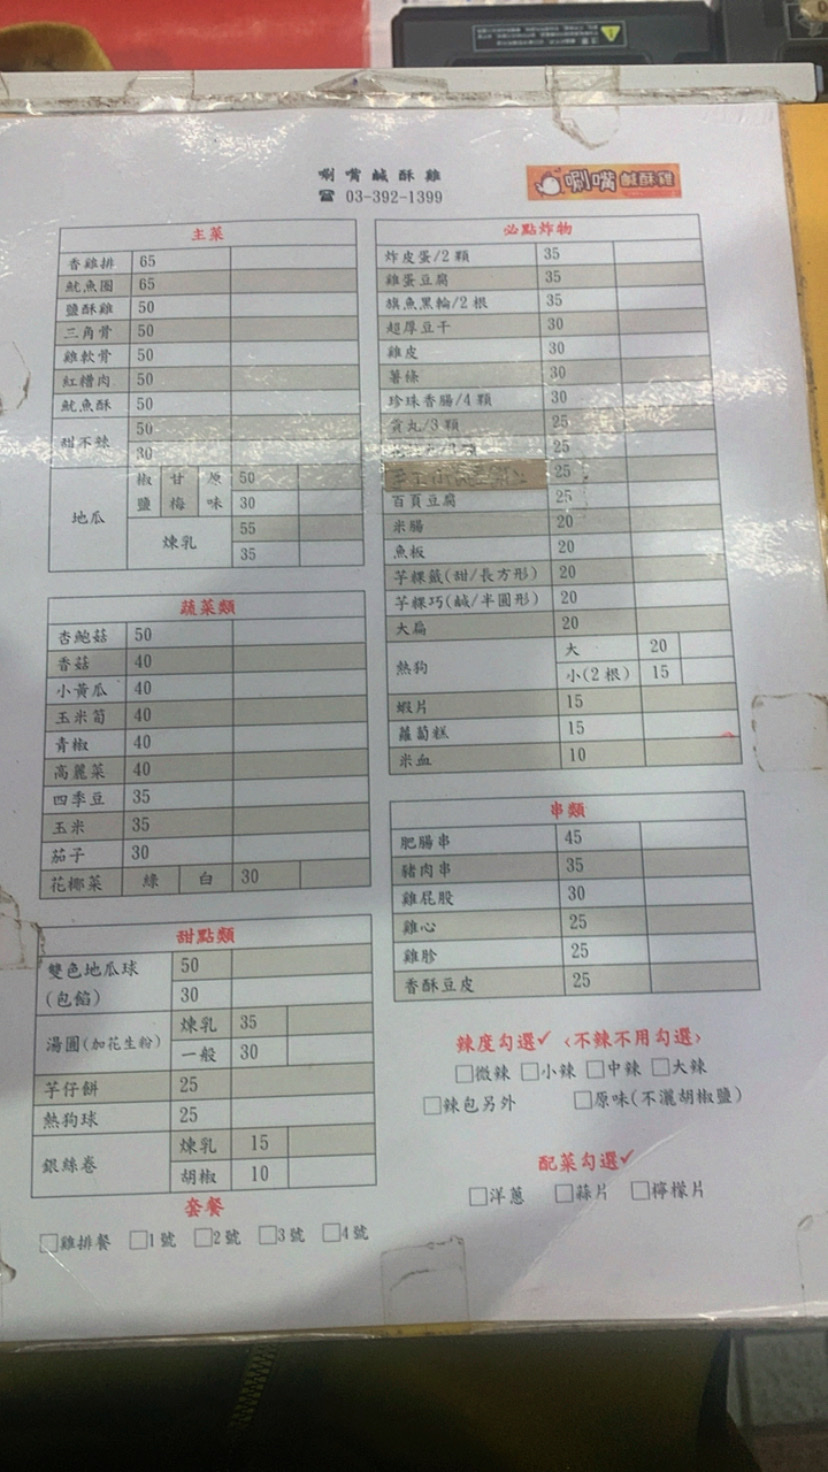 唰嘴鹹酥雞
☎ 03-392-1399
唰嘴鹹酥雞
主菜
香雞排 65
魷魚圈 65
鹽酥雞 50
三角骨 50
雞軟骨 50
紅糟肉 50
魷魚酥 50
甜不辣 50
30
地瓜 椒鹽 甘梅 原味 50
30
煉乳 55
35
蔬菜類
杏鮑菇 50
香菇 40
小黃瓜 40
玉米筍 40
青椒 40
高麗菜 40
四季豆 35
玉米 35
茄子 30
花椰菜 綠 白 30
甜點類
雙色地瓜球(包餡) 50
30
湯圓(加花生粉) 煉乳 35
一般 30
芋仔餅 25
熱狗球 25
銀絲卷 煉乳 15
胡椒 10
套餐
□雞排餐 □1號 □2號 □3號 □4號
必點炸物
炸皮蛋/2顆 35
雞蛋豆腐 35
旗魚黑輪/2根 35
超厚豆干 30
雞皮 30
薯條 30
珍珠香腸/4顆 30
貢丸/3顆 25
25
25
百頁豆腐 25
米腸 20
魚板 20
芋粿簸(甜/長方形) 20
芋粿巧(鹹/半圓形) 20
大扁 20
熱狗 大 20
小(2根) 15
蝦片 15
蘿蔔糕 15
米血 10
串類
肥腸串 45
豬肉串 35
雞屁股 30
雞心 25
雞胗 25
香酥豆皮 25
辣度勾選✓ <不辣不用勾選>
□微辣 □小辣 □中辣 □大辣
□辣包另外 □原味(不灑胡椒鹽)
配菜勾選✓
□洋蔥 □蒜片 □檸檬片